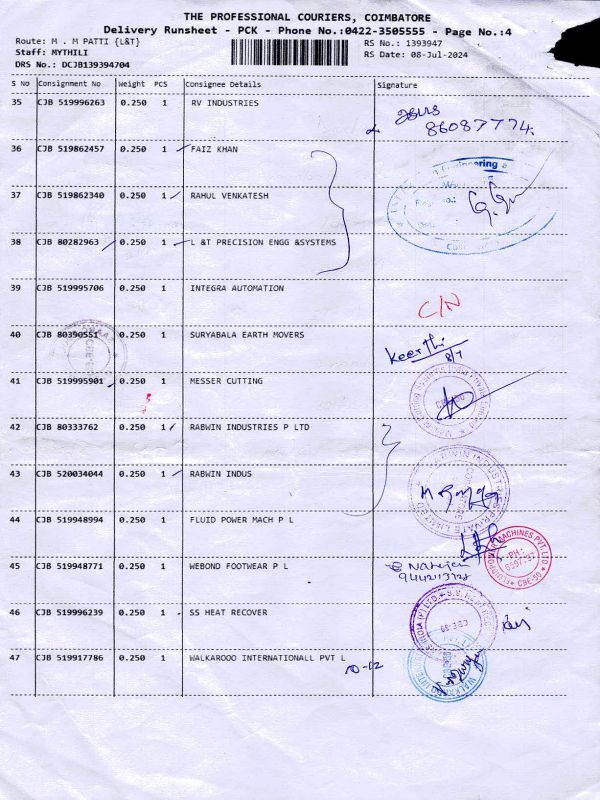 THE PROFESSIONAL COURIERS, COIMBATORE
Delivery Runsheet - PCK - Phone No.:0422-3505555 - Page No.:4
Route: M . M PATTI {L&T}
Staff: MYTHILI
DRS No.: DCJB139394704
RS No.: 1393947
RS Date: 08-Jul-2024
S No Consignment No Weight PCS Consignee Details Signature
35 CJB 519996263 0.250 1 RV INDUSTRIES
36 CJB 519862457 0.250 1 FAIZ KHAN
37 CJB 519862340 0.250 1 RAHUL VENKATESH
38 CJB 80282963 0.250 1 L &T PRECISION ENGG &SYSTEMS
39 CJB 519995706 0.250 1 INTEGRA AUTOMATION C/N
40 CJB 80390551 0.250 1 SURYABALA EARTH MOVERS Keerthi 8/7
41 CJB 519995901 0.250 1 MESSER CUTTING
42 CJB 80333762 0.250 1 RABWIN INDUSTRIES P LTD
43 CJB 520034044 0.250 1 RABWIN INDUS
44 CJB 519948994 0.250 1 FLUID POWER MACH P L
45 CJB 519948771 0.250 1 WEBOND FOOTWEAR P L
46 CJB 519996239 0.250 1 SS HEAT RECOVER
47 CJB 519917786 0.250 1 WALKAROOO INTERNATIONALL PVT L 10-02